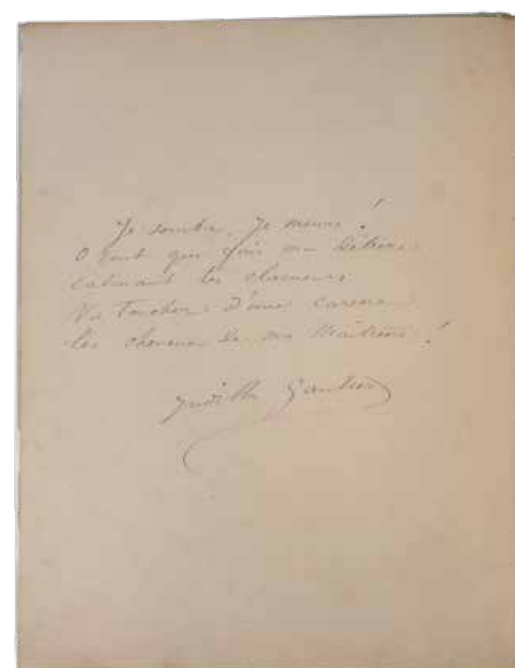 Je sombre, Je meurs !
O vent qui fais ma détresse
calmant tes clameurs
Va toucher d'une caresse
les cheveux de ma Maîtresse !
Judith Gautier